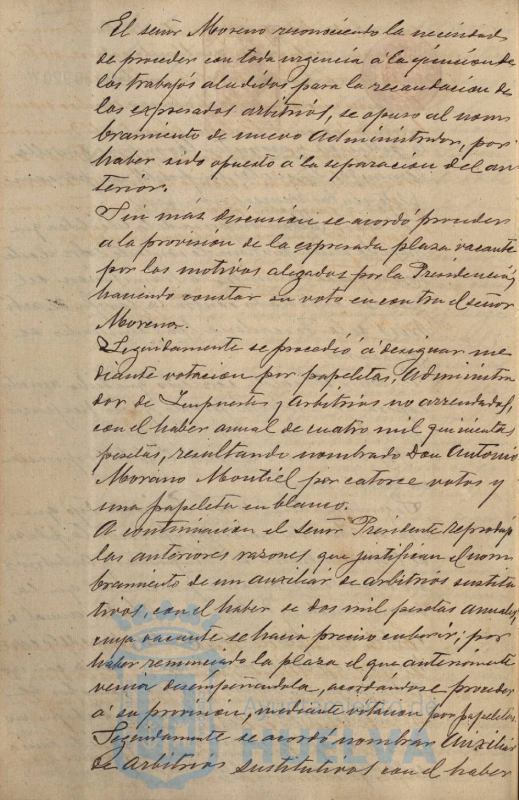 El señor Moreno reconociendo la necesidad
de proceder con toda urgencia á la
los trabajos aludidos para la recaudacion de
los expresados arbitrios, se opuso al nom-
bramiento de nuevo Administrador, por
haber sido opuesto á la separacion del an-
terior.
Sin más discusion se acordó proceder
á la provision de la expresada plaza vacante
por los motivos alegados por la Presidencia,
haciendo constar su voto en contra el señor
Moreno.
Seguidamente se procedió á designar me-
diante votacion por papeletas, Administra-
dor de Impuestos y Arbitrios no arrendados,
con el haber anual de cuatro mil quinientas
pesetas, resultando nombrado Don Antonio
Morano Montiel por catorce votos y
una papeleta en blanco.
A continuacion el señor Presidente reprodujo
las anteriores razones que justifican el nom-
bramiento de un auxiliar de arbitrios sustitu-
tivos, con el haber de dos mil pesetas anuales,
cuya vacante se hacia preciso cubrir, por
haber renunciado la plaza el que anteriormente
venia desempeñandola, acordándose proceder
á su provision, mediante votacion por papeletas.
Seguidamente se acordó nombrar Auxiliar
de Arbitrios sustitutivos con el haber
HUELVA